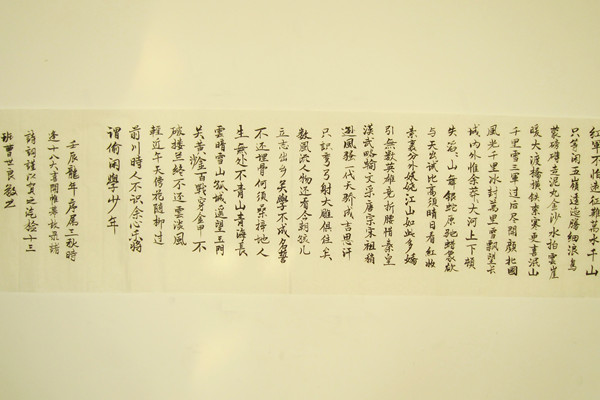 紅軍不怕遠征難萬水千山
只等闲五嶺逶迤騰細浪烏
蒙磅礴走泥丸金沙水拍雲崖
暖大渡橋橫鉄索寒更喜泯山
千里雪三軍过后尽開顏北國
風光千里冰封萬里雪飘望長
城内外惟余莽々大河上下頓
失滔々山舞銀蛇原馳蜡象欲
与天公试比高須晴日看紅妝
素裹分外妖娆江山如此多嬌
引無數英雄竞折腰惜秦皇
漢武略輸文采唐宗宋祖稍
遜風騷一代天骄成吉思汗
只识弯弓射大雕俱往矣
數風流人物还看今朝孩儿
立志出乡関學不成名誓
不还埋骨何须桑梓地人
生無处不青山青海長
雲暗雪山孤城遥望玉門
关黄沙百戰穿金甲不
破楼兰終不还雲淡風
輕近午天傍花随柳过
前川時人不识余心乐將
谓偷闲學少年
壬辰龍年序属三秋時
逢十八大喜開惟幕敬录諸
詩詞
班曹世良敬書